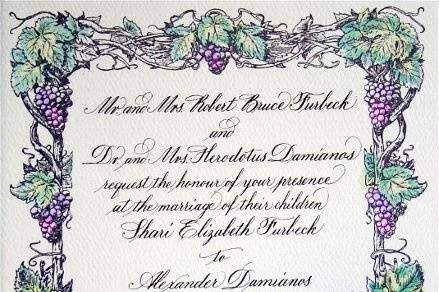 Mr. and Mrs. Robert Bruce Furbeck
and
Dr. and Mrs. Herodotus Damianos
request the honour of your presence
at the marriage of their children
Shari Elizabeth Furbeck
to
Alexander Damianos